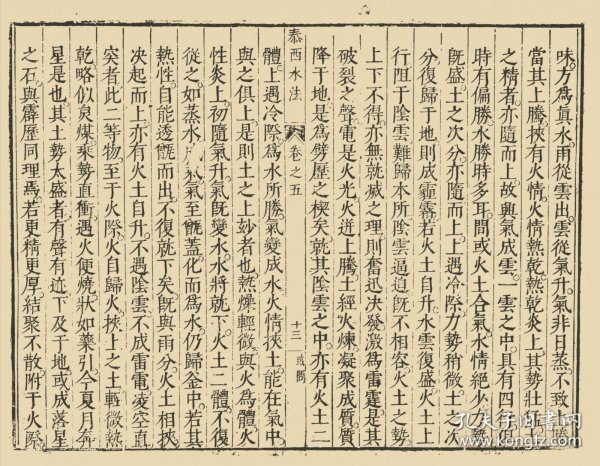 味。方為真水。雨從雲出。雲從氣升。氣非日蒸。不致上騰
當其上騰。挾有火情。火情熱乾。熱乾炎上。其勢壯
之精者。亦隨而上。故與氣成雲。一雲之中。具有四行
時有偏勝。水勝時多耳。間或火土合氣。水情絕少。勢
旣盛。土之次分。亦隨而上。上遇冷際。力勢稍微。土之次
分。復歸于地。則成霾霧。若火土自升。水雲復盛。火土上
行。阻于陰雲。難歸本所。陰雲逼迫。旣不相容。火土之勢
上下不得。亦無就滅之理。則奮迅決發。激為雷霆。是其
破裂之聲。電是火光。火迸上騰。土經火煉。凝聚成質。質
降于地。是為劈歷之楔矣。就其陰雲之中。亦有火土二
泰西水法 卷之五 十三
體。上遇冷際。為水所勝。氣變成水。火情挾土。能在氣中
與之俱上。是則土之上妙者也。熱燥輕微。與火為體。火
性炎上。初隨氣升。氣旣變水。水將就下。火土二體。不復
從之。如蒸水 氣。氣至甑蓋。化而為水。仍歸金中。若其
熱性。自能透甑而出。不復就下矣。旣與雨分。火土相挾
決起而上。亦有火土自升。不遇陰雲。不成雷電。凌空直
突者。此二等物。至于火際。火自歸火。挾上之土。輕微熱
乾。略似炱煤。乘勢直衝。遇火便燒。狀如藥引。今夏月奔
星是也。其土勢太盛者。有聲有迹。下及于地。或成落星
之石。與霹歷同理焉。若更精更厚。結聚不散。附于火際
孔夫子旧书网
www.kongfz.com